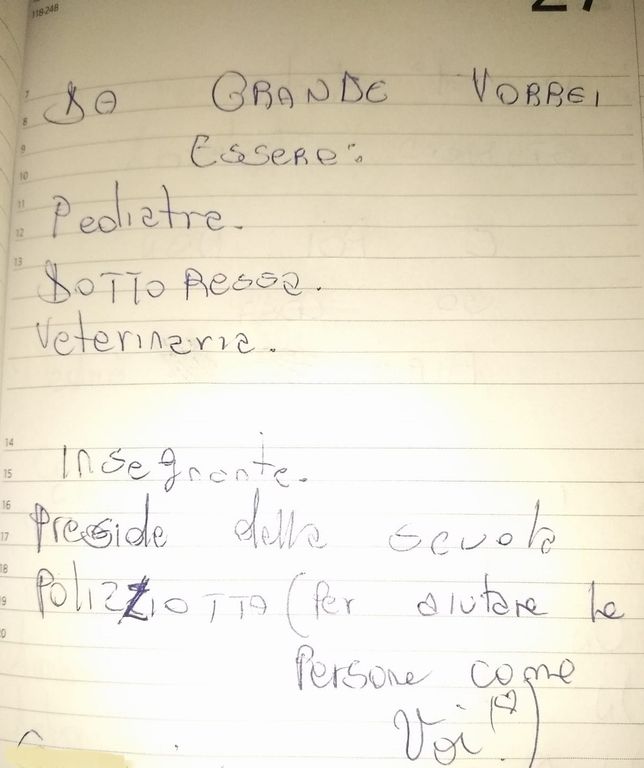 118-248
27
7
DA GRANDE VORREI
8
9
ESSERE:
10
11
Pediatra.
12
13
DOTTORESSA.
Veterinaria.
14
Insegnante.
15
16
Preside della scuola
17
18
POLIZZIOTTA (Per aiutare le
19
20
Persone come
Voi ♡)